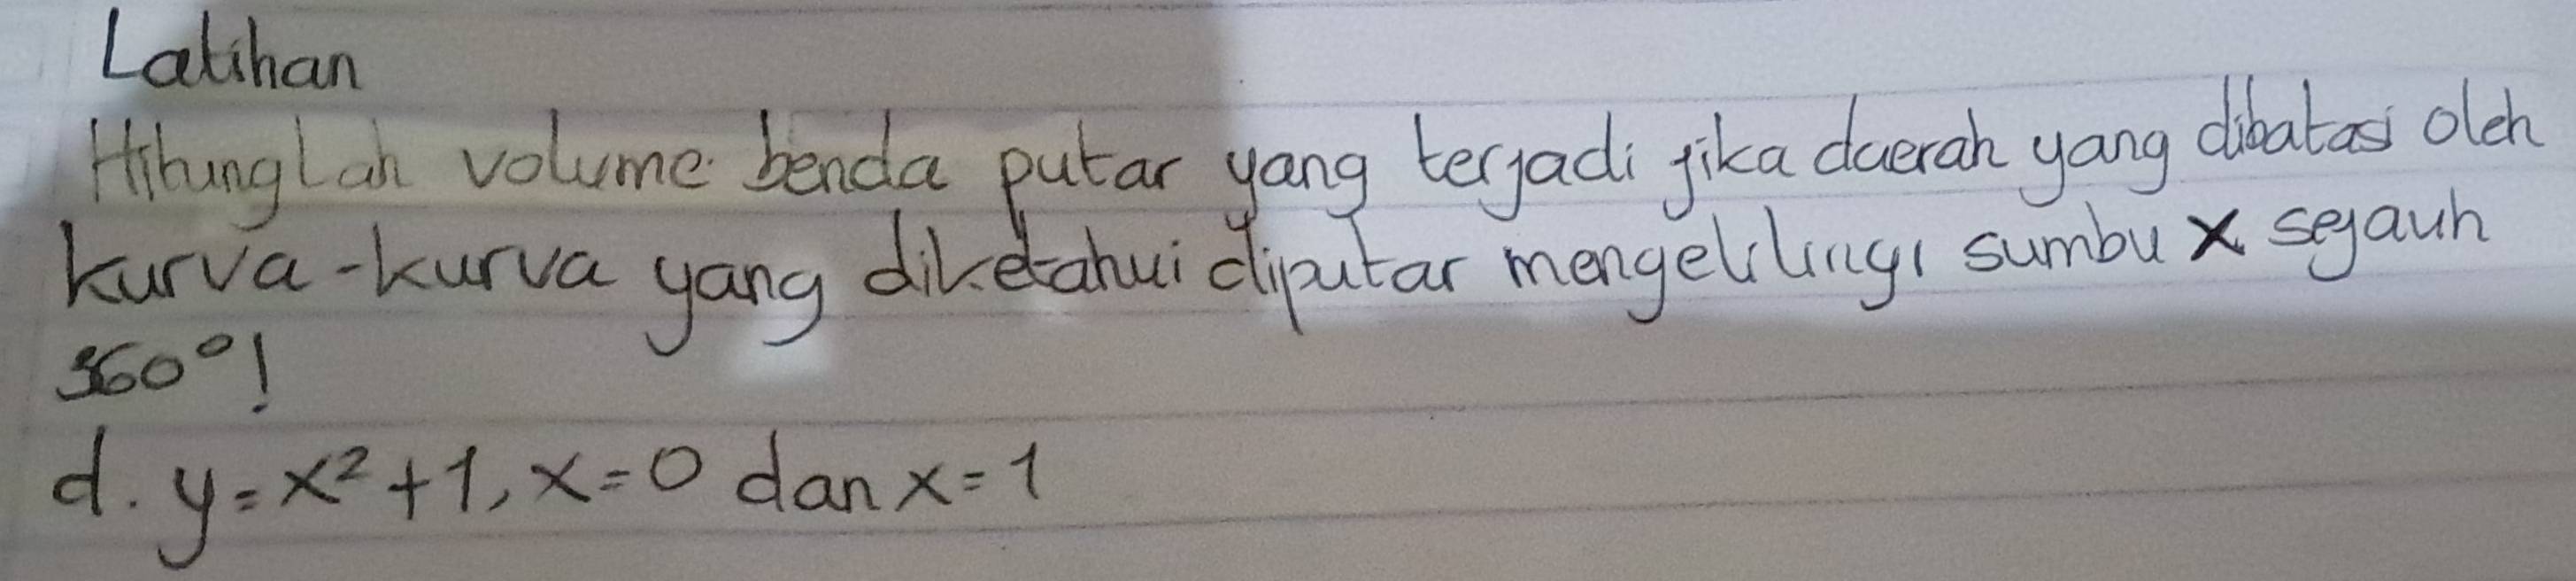 Latihan
Hitunglah volume benda putar yang terjadi jika daerah yang dibatasi oleh
kurva-kurva yang diketahui diputar mengelilingi sumbu x sejauh
360°!
d. y = x² + 1, x = 0 dan x = 1